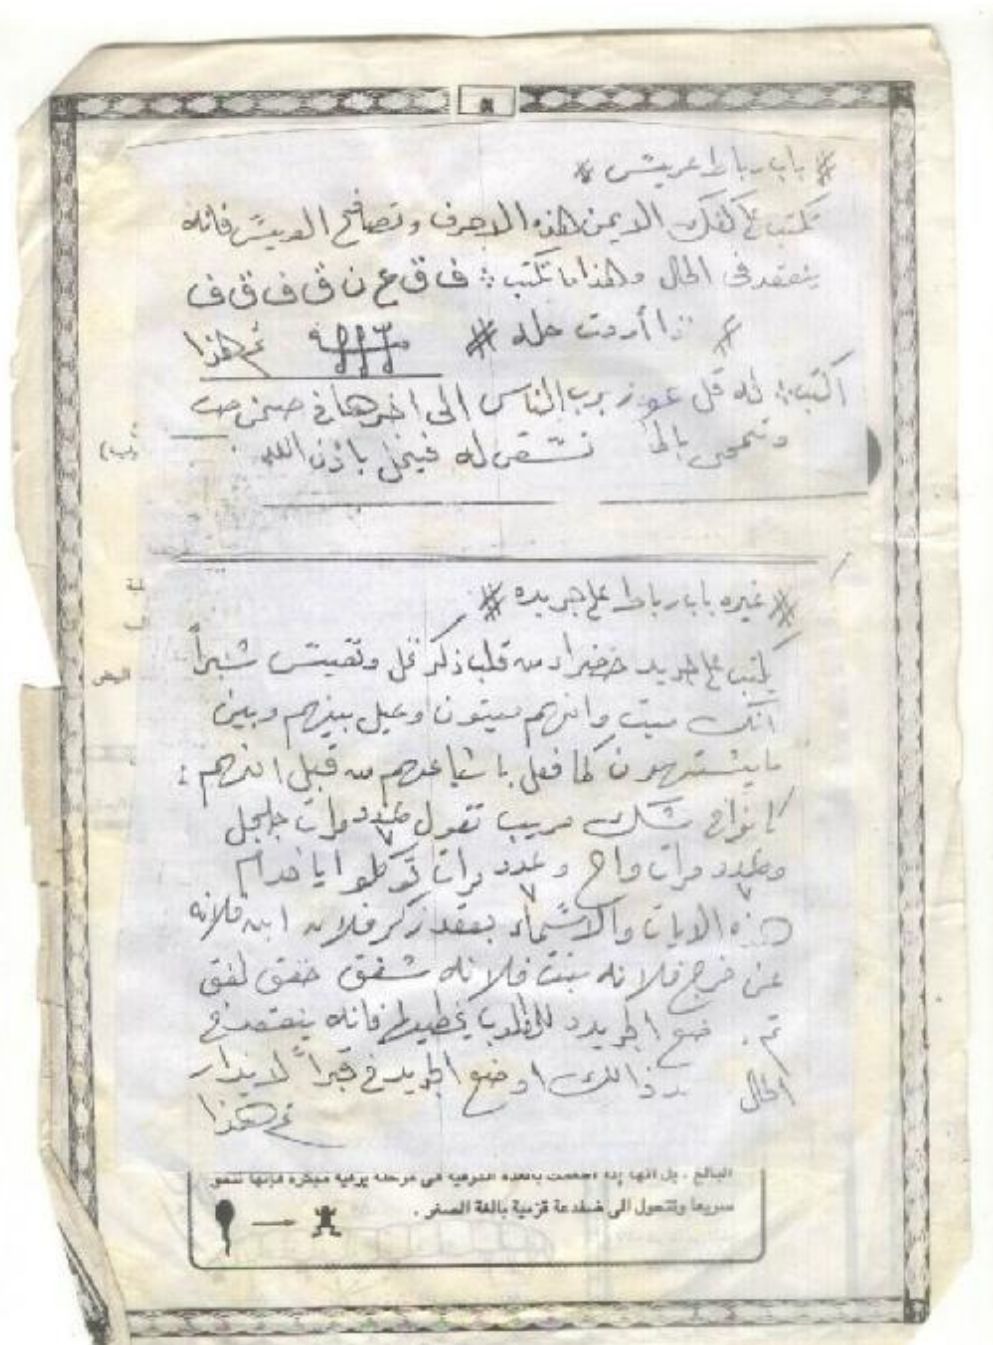 # باب رباط عريس #
تكتب على كفك الايمن هذه الاحرف وتصافح العريس فانه
ينعقد في الحال وهذا ما تكتب : ف ق ع ن ق ف ق ف
ذا أردت حله # تم هذا
اكتب له قل عوز برب الناس الى اخرها في صحن
وتمحى بالما تسقى له فينحل باذن الله
# غيره باب رباط على جريده #
يكتب على جريد خضراء من قلب ذكر نخل وتقيس شبراً
انك ميت وانهم ميتون وحيل بينهم وبين
ما يشتهون كما فعل باشياعهم من قبل انهم :
كانوا في شك مريب تقول عدد ٧ مرات جلجل
وعدد ٧ مرات واح وعدد ٧ مرات توكلوا ايا خدام
هذه الايات والاسماء بعقد زكر فلان ابن فلانه
عن فرج فلانه بنت فلانه شفق خفق لفق
تم . ضع الجريد فانه ينعقد في
الحال ذالك اوضع الجريد في قبراً لا يندار
تم هذا
سريعا وتتحول الى ضفدعة قزمية بالغة الصغر .